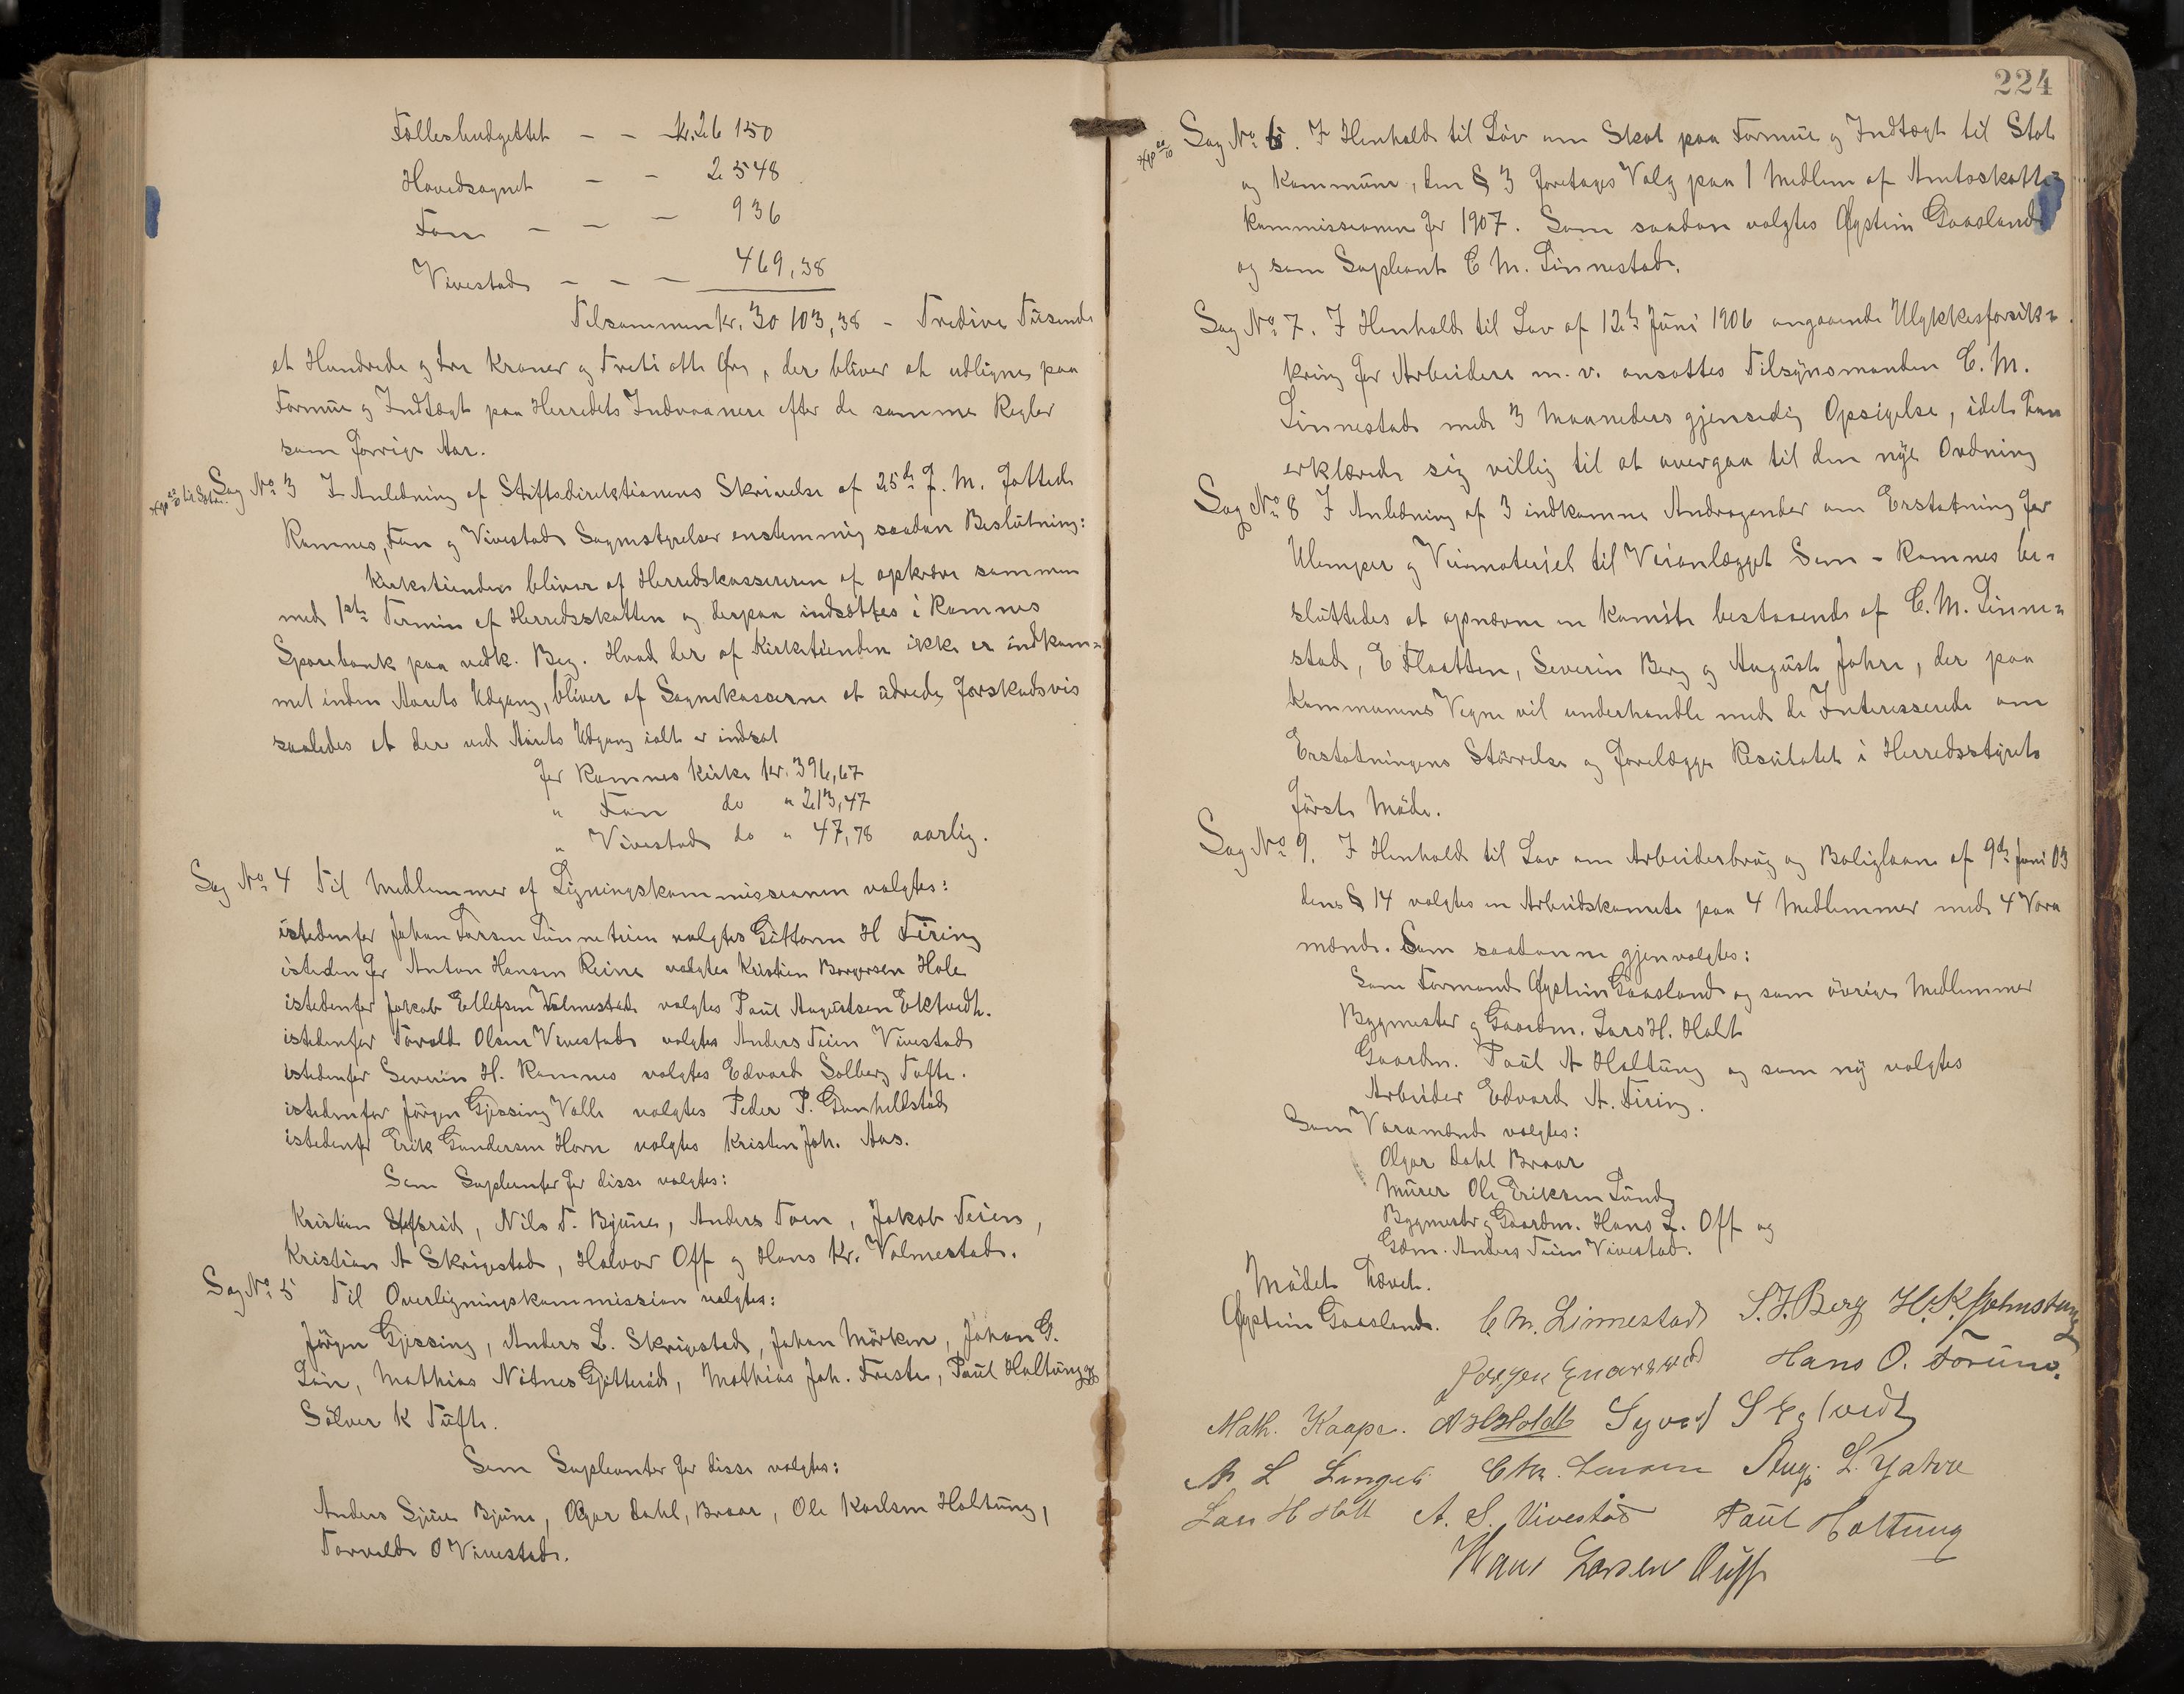 Fællesbudgettet - - kr. 26 150
Hovedsognet - - 2 548
Fon - - - 936
Vivestad - - - 469,38
Tilsammen kr. 30 103,38 - Tredive Tusende
et Hundrede og tre Kroner og Treti otte Øre, der bliver at udligne paa
Formue og Indtægt paa Herredets Indvaanere efter de samme Regler
som forrige Aar.
Sag No 3 I Anledning af Stiftsdirektionens Skrivelse af 25de f. M. fattede
Ramnes, Fon og Vivestad Sognestyrelser enstemmig saadan Beslutning:
Kirketienden bliver af Herredskassereren at opkræve sammen
med 1ste Termin af Herredsskatten og derpaa indsættes i Ramnes
Sparebank paa vedk. Beg. Hvad der af Kirketienden ikke er indkom-
met inden Aarets Udgang, bliver af Sognekasserne at udrede forskudsvis
saaledes at der ved Aarets Udgang ialt er indsat
for Ramnes Kirke kr. 396,67
" Fon do " 213,47
" Vivestad do " 47,78 aarlig.
Sag No 4 Til Medlemmer af Ligningskommissionen valgtes:
istedenfor Johan Larsen Linneteien valgtes Guttorm H Firing
istedenfor Anton Hansen Reine valgtes Kristian Borgersen Hole
istedenfor Jakob Ellefsen Valmestad valgtes Paul Augustsen Ektvedt.
istedenfor Torvald Olsen Vivestad valgtes Anders Teien Vivestad
istedenfor Severin H. Ramnes valgtes Edvard Solberg Tufte.
istedenfor Jörgen Gjessing Valle valgtes Peder P. Gunhellstad
istedenfor Erik Gundersen Horn valgtes Kristen Joh. Aas.
Som Supleanter for disse valgtes:
Kristian, Nils T. Bjune, Anders Toen, Jakob Teien,
Kristian A Skrigestad, Halvor Off og Hans Kr. Valmestad.
Sag No 5 Til Overligningskommission valgtes:
Jörgen Gjessing, Anders L. Skrigestad, Johan Mörken, Johan G.
Lön, Mathias Nötnes Gjötterud, Mathias Joh. Freste, Paul Holtung og
Sölver K Tufte.
Som Supleanter for disse valgtes:
Anders Sjue Bjune, Olgar Dahl, Braar, Ole Karlsen Holtung,
Torvald O Vivestad.
224
Sag No 6. I Henhold til Lov om Skat paa Formue og Indtægt til Stat
og Kommune, dens § 3 foretages Valg paa 1 Medlem af Amtsskatte-
kommissionen for 1907. Som saadan valgtes Øystein Gaasland
og som Supleant C. M. Linnestad.
Sag No 7. I Henhold til Lov af 12te Juni 1906 angaaende Ulykkesforsik-
kring for Arbeidere m. v. ansattes Tilsynsmanden C. M.
Linnestad med 3 Maaneders gjensidig Opsigelse, idet han
erklærede sig villig til at overgaa til den nye Ordning
Sag No 8 I Anledning af 3 indkomne Andragender om Erstatning for
Ulemper og Veimateriel til Veianlægget Sem - Ramnes be-
sluttedes at opnævne en Komite bestaaende af C. M. Linne-
stad, E Flaatten, Severin Berg og August Jahre, der paa
Kommunens Vegne vil underhandle med de Interesserede om
Erstatningens Störrelse og forelægge Resultatet i Herredsstyrets
först Möde.
Sag No 9. I Henhold til Lov om Arbeiderbrug og Boliglaan af 9de Juni 03
dens § 14 valgtes en Arbeidskomite paa 4 Medlemmer med 4 Vara
mænd. Som saadanne gjenvalgtes:
Som Formand Øystein Gaasland og som övrige Medlemmer
Bygmester og Gaardm. Lars H. Holt
Gaardm. Paul A Holtung og som ny valgtes
Arbeider Edvard A. Firing.
Som Varamænd valgtes:
Olgar Dahl Braar
Murer Ole Eriksen Lund
Bygmester og Gaardm. Hans L. Off og
Gdm. Anders Teien Vivestad.
Mödet hævet.
Øystein Gaasland. C. M. Linnestad S. J. Berg H. K. Hjelmstang
Jørgen Hans O. Forüne.
Math. Kaape. A H Holdt Syver S Egtvedt
A. L Lingeli Chr. Larsen Aug. L. Jahre
Lars H Holt A. S. Vivestad Paul Holtung
Hans Larsen Ouff